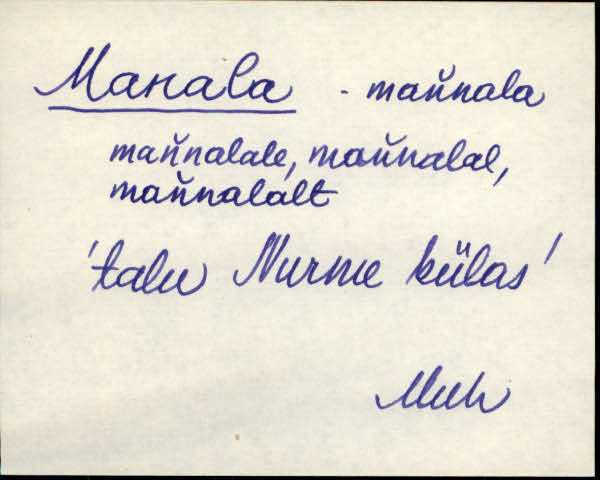 Manala - man̆nala
man̆nalale, man̆nalal,
man̆nalalt
'talu Nurme külas'
Muh